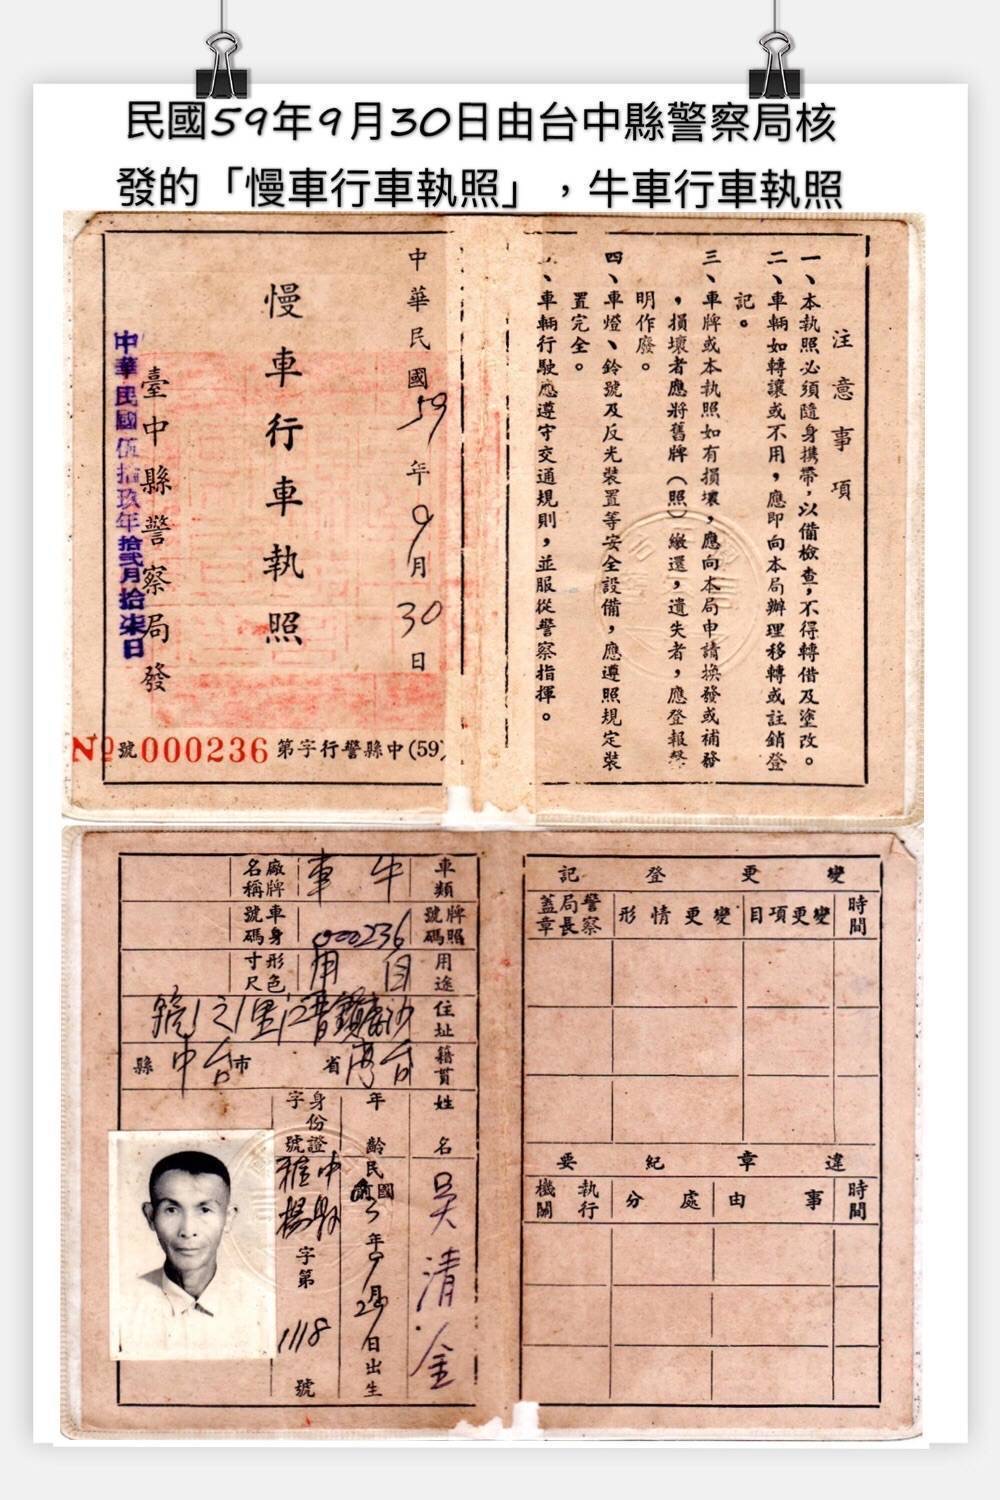 民國59年9月30日由台中縣警察局核
發的「慢車行車執照」，牛車行車執照
注意事項
一、本執照必須隨身携帶，以備檢查，不得轉借及塗改。
二、車輛如轉讓或不用，應即向本局辦理移轉或註銷登
記。
三、車牌或本執照如有損壞，應向本局申請換發或補發
，損壞者應將舊牌（照）繳還，遺失者，應登報聲
明作廢。
四、車燈、鈴號及反光裝置等安全設備，應遵照規定裝
置完全。
、車輛行駛應遵守交通規則，並服從警察指揮。
中華民國59年9月30日
慢車行車執照
臺中縣警察局發
中華民國伍拾玖年拾弍月拾柒日
(59)中縣警行字第000236號 No
車類 牛車
廠牌名稱
牌照號碼 000236
車身號碼
用途 自用
形色尺寸
住址 沙鹿鎮晋江里1之1號
籍貫 台灣省 市台中縣
姓名 吳清金
年齡 民國前3年9月29日出生
身份證字號 中縣 字第1118號
變更登記
時間 變更項目 變更情形 警察局長蓋章
違章紀要
時間 事由 處分 執行機關